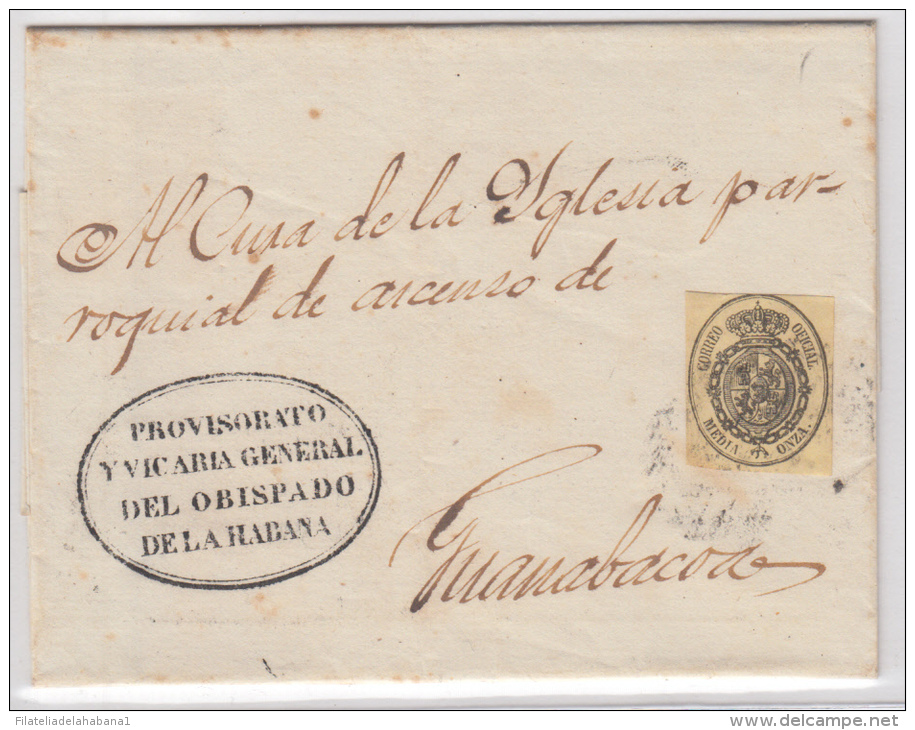 Al Cura de la Yglesia par-
roquial de ascenso de
CORREO OFICIAL
MEDIA ONZA.
PROVISORATO
Y VICARIA GENERAL
DEL OBISPADO
DE LA HABANA
Guanabacoa
Filateliadelahabana1
www.delcampe.net